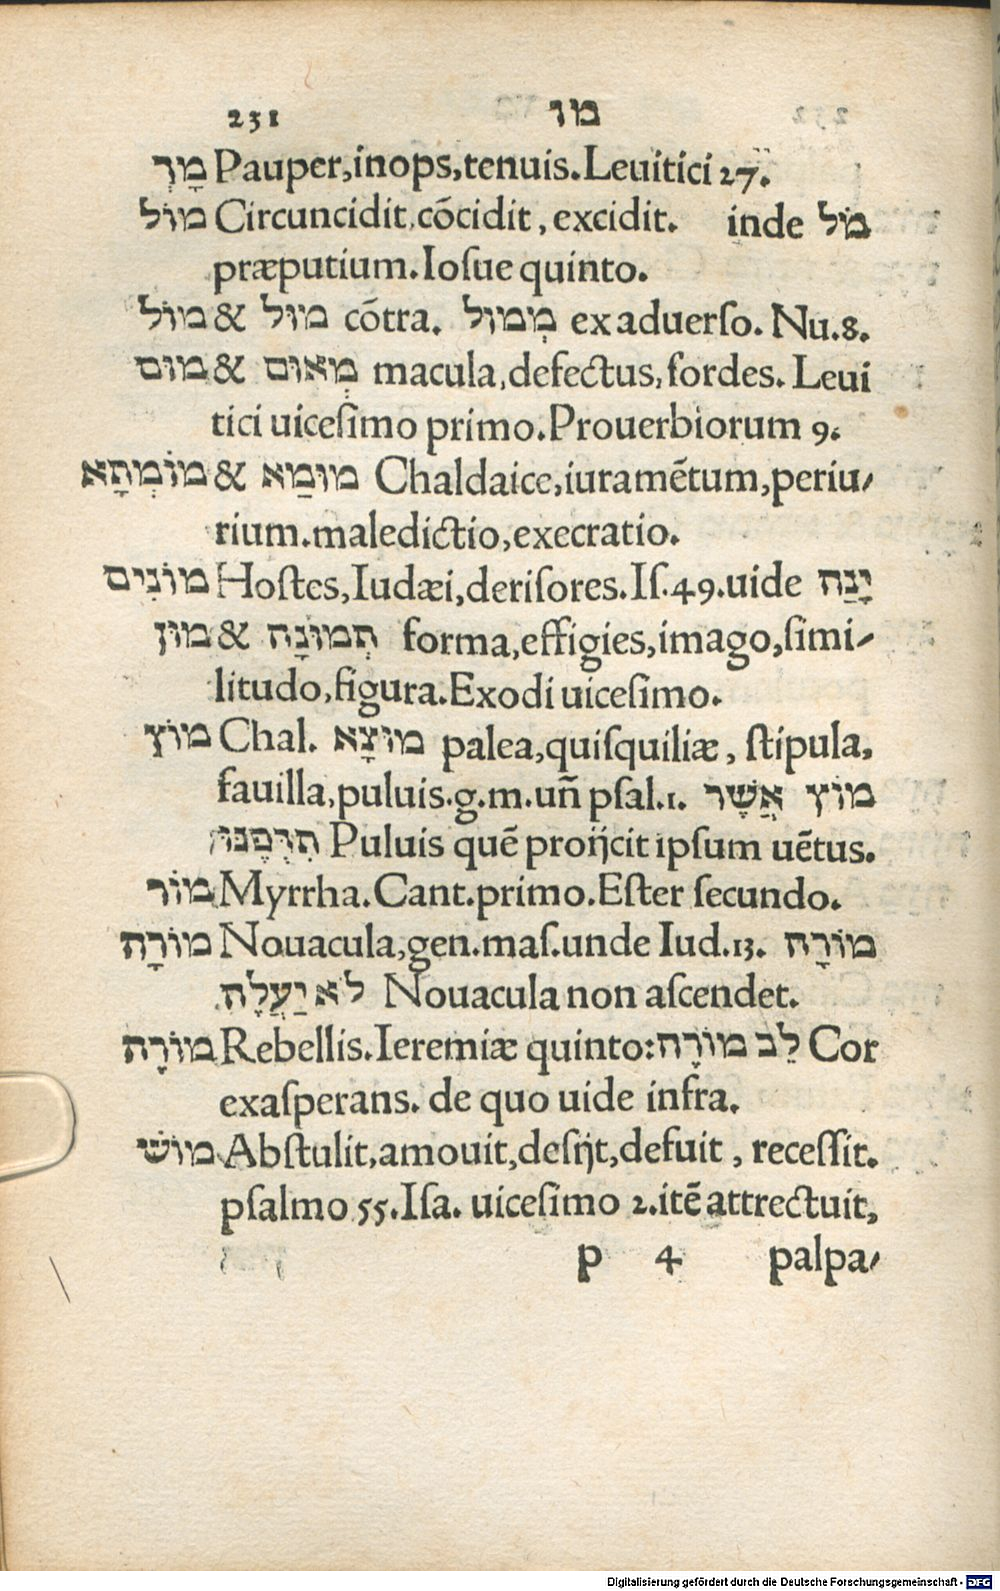 231 מו
מָךְ Pauper,inops,tenuis.Leuitici 27.
מוֹל Circuncidit,cōcidit, excidit. inde מֹל
præputium.Iosue quinto.
מוֹל & מוּל cōtra. מְמוּל ex aduerſo. Nu.8.
מוּם & מְאוּם macula,defectus,ſordes. Leui
tici uiceſimo primo.Prouerbiorum 9.
מוֹמְתָא & מוּמַא Chaldaice,iuramētum,periu/
rium.maledictio,execratio.
מוֹנִים Hoſtes,Iudæi,deriſores.Iſ.49.uide יָנַה
מוּן & תְמוּנָה forma,effigies,imago,ſimi/
litudo,figura.Exodi uiceſimo.
מוֹץ Chal. מוּצָא palea,quiſquiliæ, ſtipula,
fauilla,puluis.g.m.uñ pſal.1. מוֹץ אֲשֶׁר
תִדְּפֶנּוּ Puluis quē proijcit ipſum uētus.
מוֹר Myrrha.Cant.primo.Eſter ſecundo.
מוֹרָה Nouacula,gen.maſ.unde Iud.13. מוֹרָה
לֹא יַעֲלֶה Nouacula non aſcendet.
מוֹרֶה Rebellis.Ieremiæ quinto: לֵב מוֹרֶה Cor
exaſperans. de quo uide infra.
מוּשׁ Abſtulit,amouit,deſijt,defuit, receſſit.
pſalmo 55.Iſa. uiceſimo 2.itē attrectuit,
p 4 palpa/
Digitalisierung gefördert durch die Deutsche Forschungsgemeinschaft - DFG